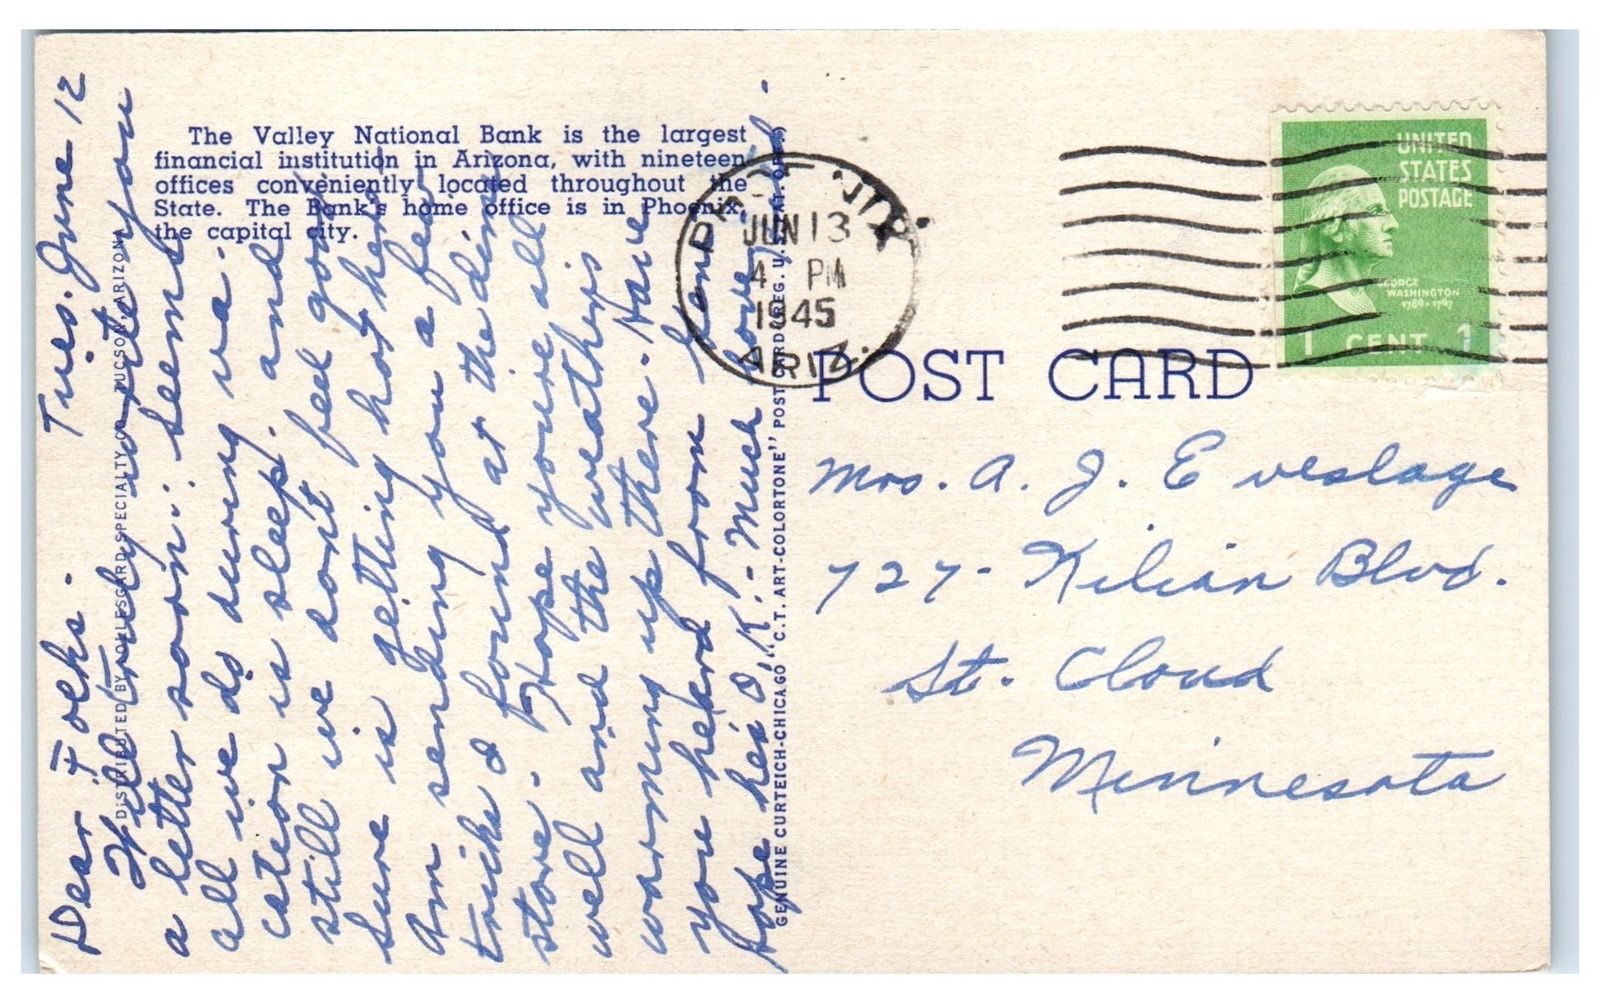 The Valley National Bank is the largest
financial institution in Arizona, with nineteen
offices conveniently located throughout the
State. The Bank's home office is in Phoenix,
the capital city.
Tues. June 12
Dear Folks -
Will truly write you
a letter soon: seems
all we do during va-
cation is sleep, and
still we dont feel good!
Sure is getting hot here.
Am sending you a few
tricks I found at the dime
store. Hope youre all
well and the weather is
warming up there. Have
you heard from
hope he's O.K. - Much love,
DISTRIBUTED BY LOLLESGARD SPECIALTY CO. TUCSON, ARIZONA
GENUINE CURTEICH-CHICAGO "C.T. ART-COLORTONE" POST CARD (REG. U.S. PAT. OFF.)
JUN 13
4 PM
1945
ARIZ.
UNITED
STATES
POSTAGE
GEORGE
WASHINGTON
1789-1797
1 CENT 1
POST CARD
Mrs. A. J. Eveslage
727 - Kilian Blvd.
St. Cloud
Minnesota